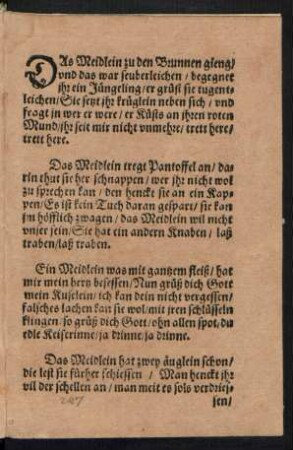 DAs Meidlein zu den Brunnen gieng/
vnd das war seuberleichen / begegnet
jhr ein Jüngeling/ er grüst sie tugent-
leichen/ Sie setzt jhr krüglein neben sich / vnd
fragt jn wer er were/ er Küsts an jhren roten
Mund/ jhr seit mir nicht vnmehre/ trett here/
trett here.
Das Meidlein tregt Pantoffel an/ da-
rin thut sie her schnappen/ wer jhr nicht wol
zu sprechen kan / den henckt sie an ein Kap-
pen/ Es ist kein Tuch daran gespart/ sie kan
jm höfflich zwagen / das Meidlein wil nicht
vnser sein/ Sie hat ein andern Knaben / laß
traben/ laß traben.
Ein Meidlein was mit gantzem fleiß/ hat
mir mein hertz besessen/ Nun grüß dich Gott
mein Kuselein/ ich kan dein nicht vergessen/
falsches lachen kan sie wol/ mit jren schlüsseln
klingen/ so grüß dich Gott/ ohn allen spot/ du
edle Keiserinne/ ja drinne ja drinne.
Das Meidlein hat zwey äuglein schon/
die lest sie fürher schiessen / Man henckt jhr
vil der schellen an / man meit es sols verdries-
sen/
247